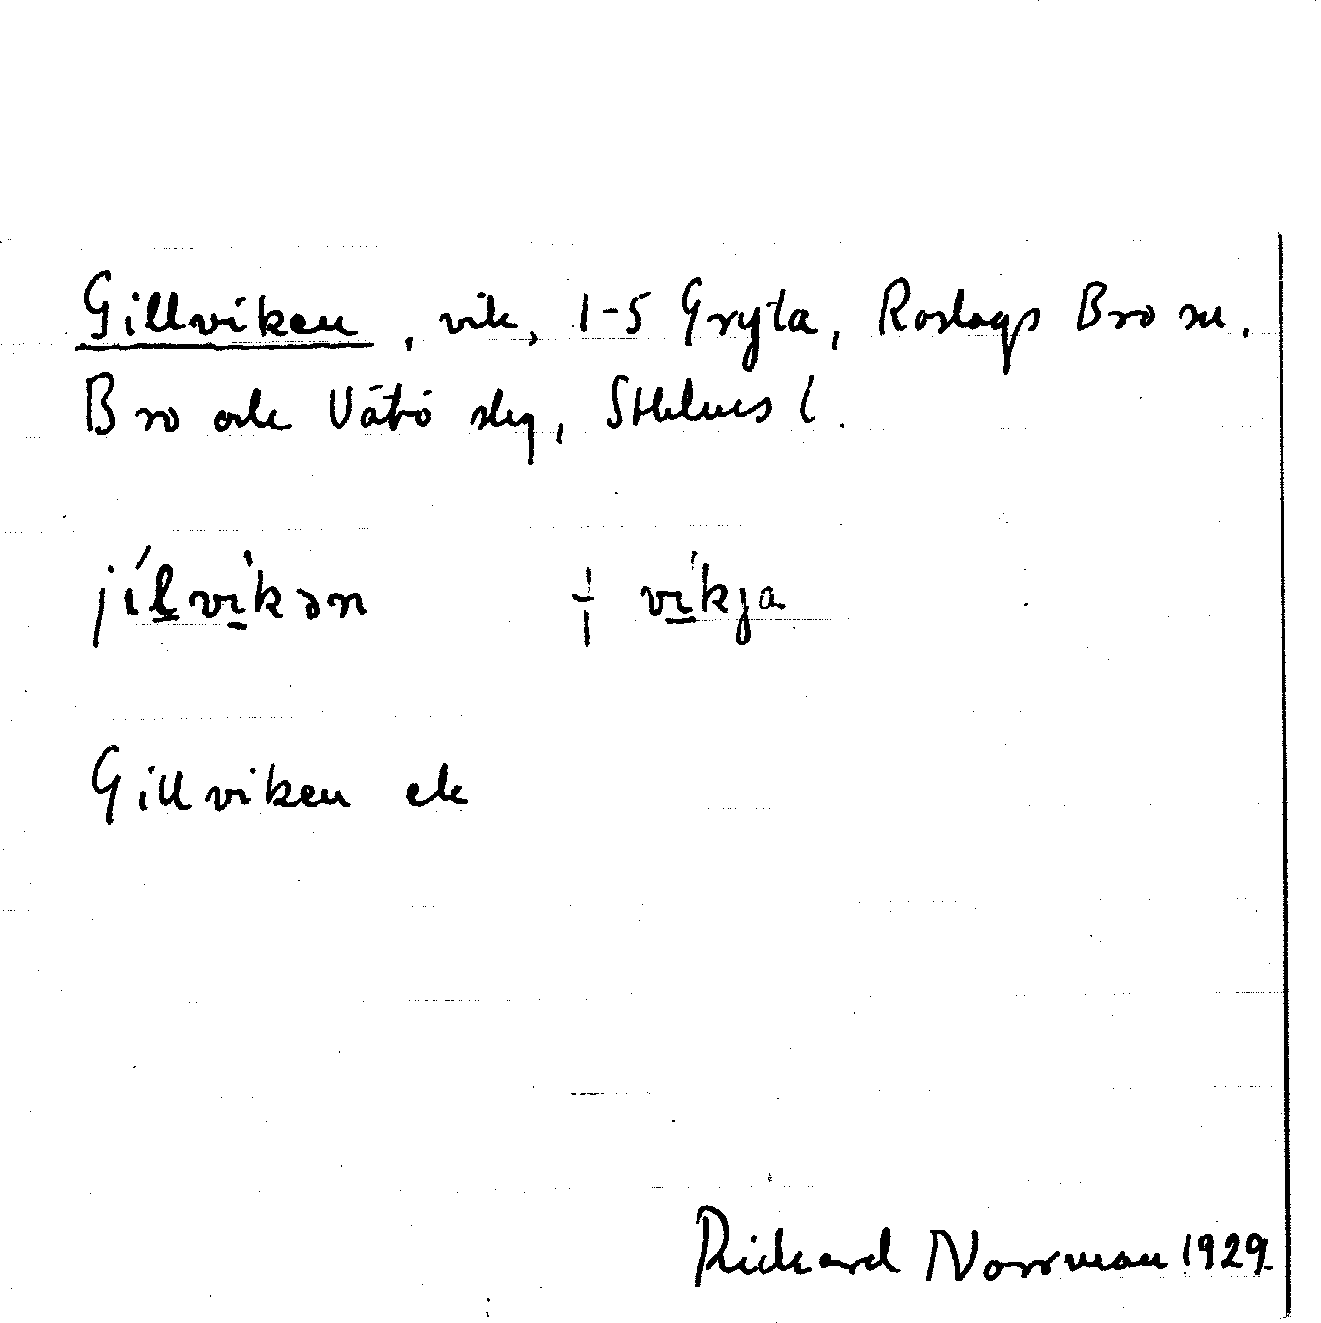 Gillviken, vik, 1-5 Gryta, Roslags Bro sn.
Bro och Vätö slg, Sthlms l.
jílvìkən † vìkja
Gillviken ek
Rickard Norrman 1929